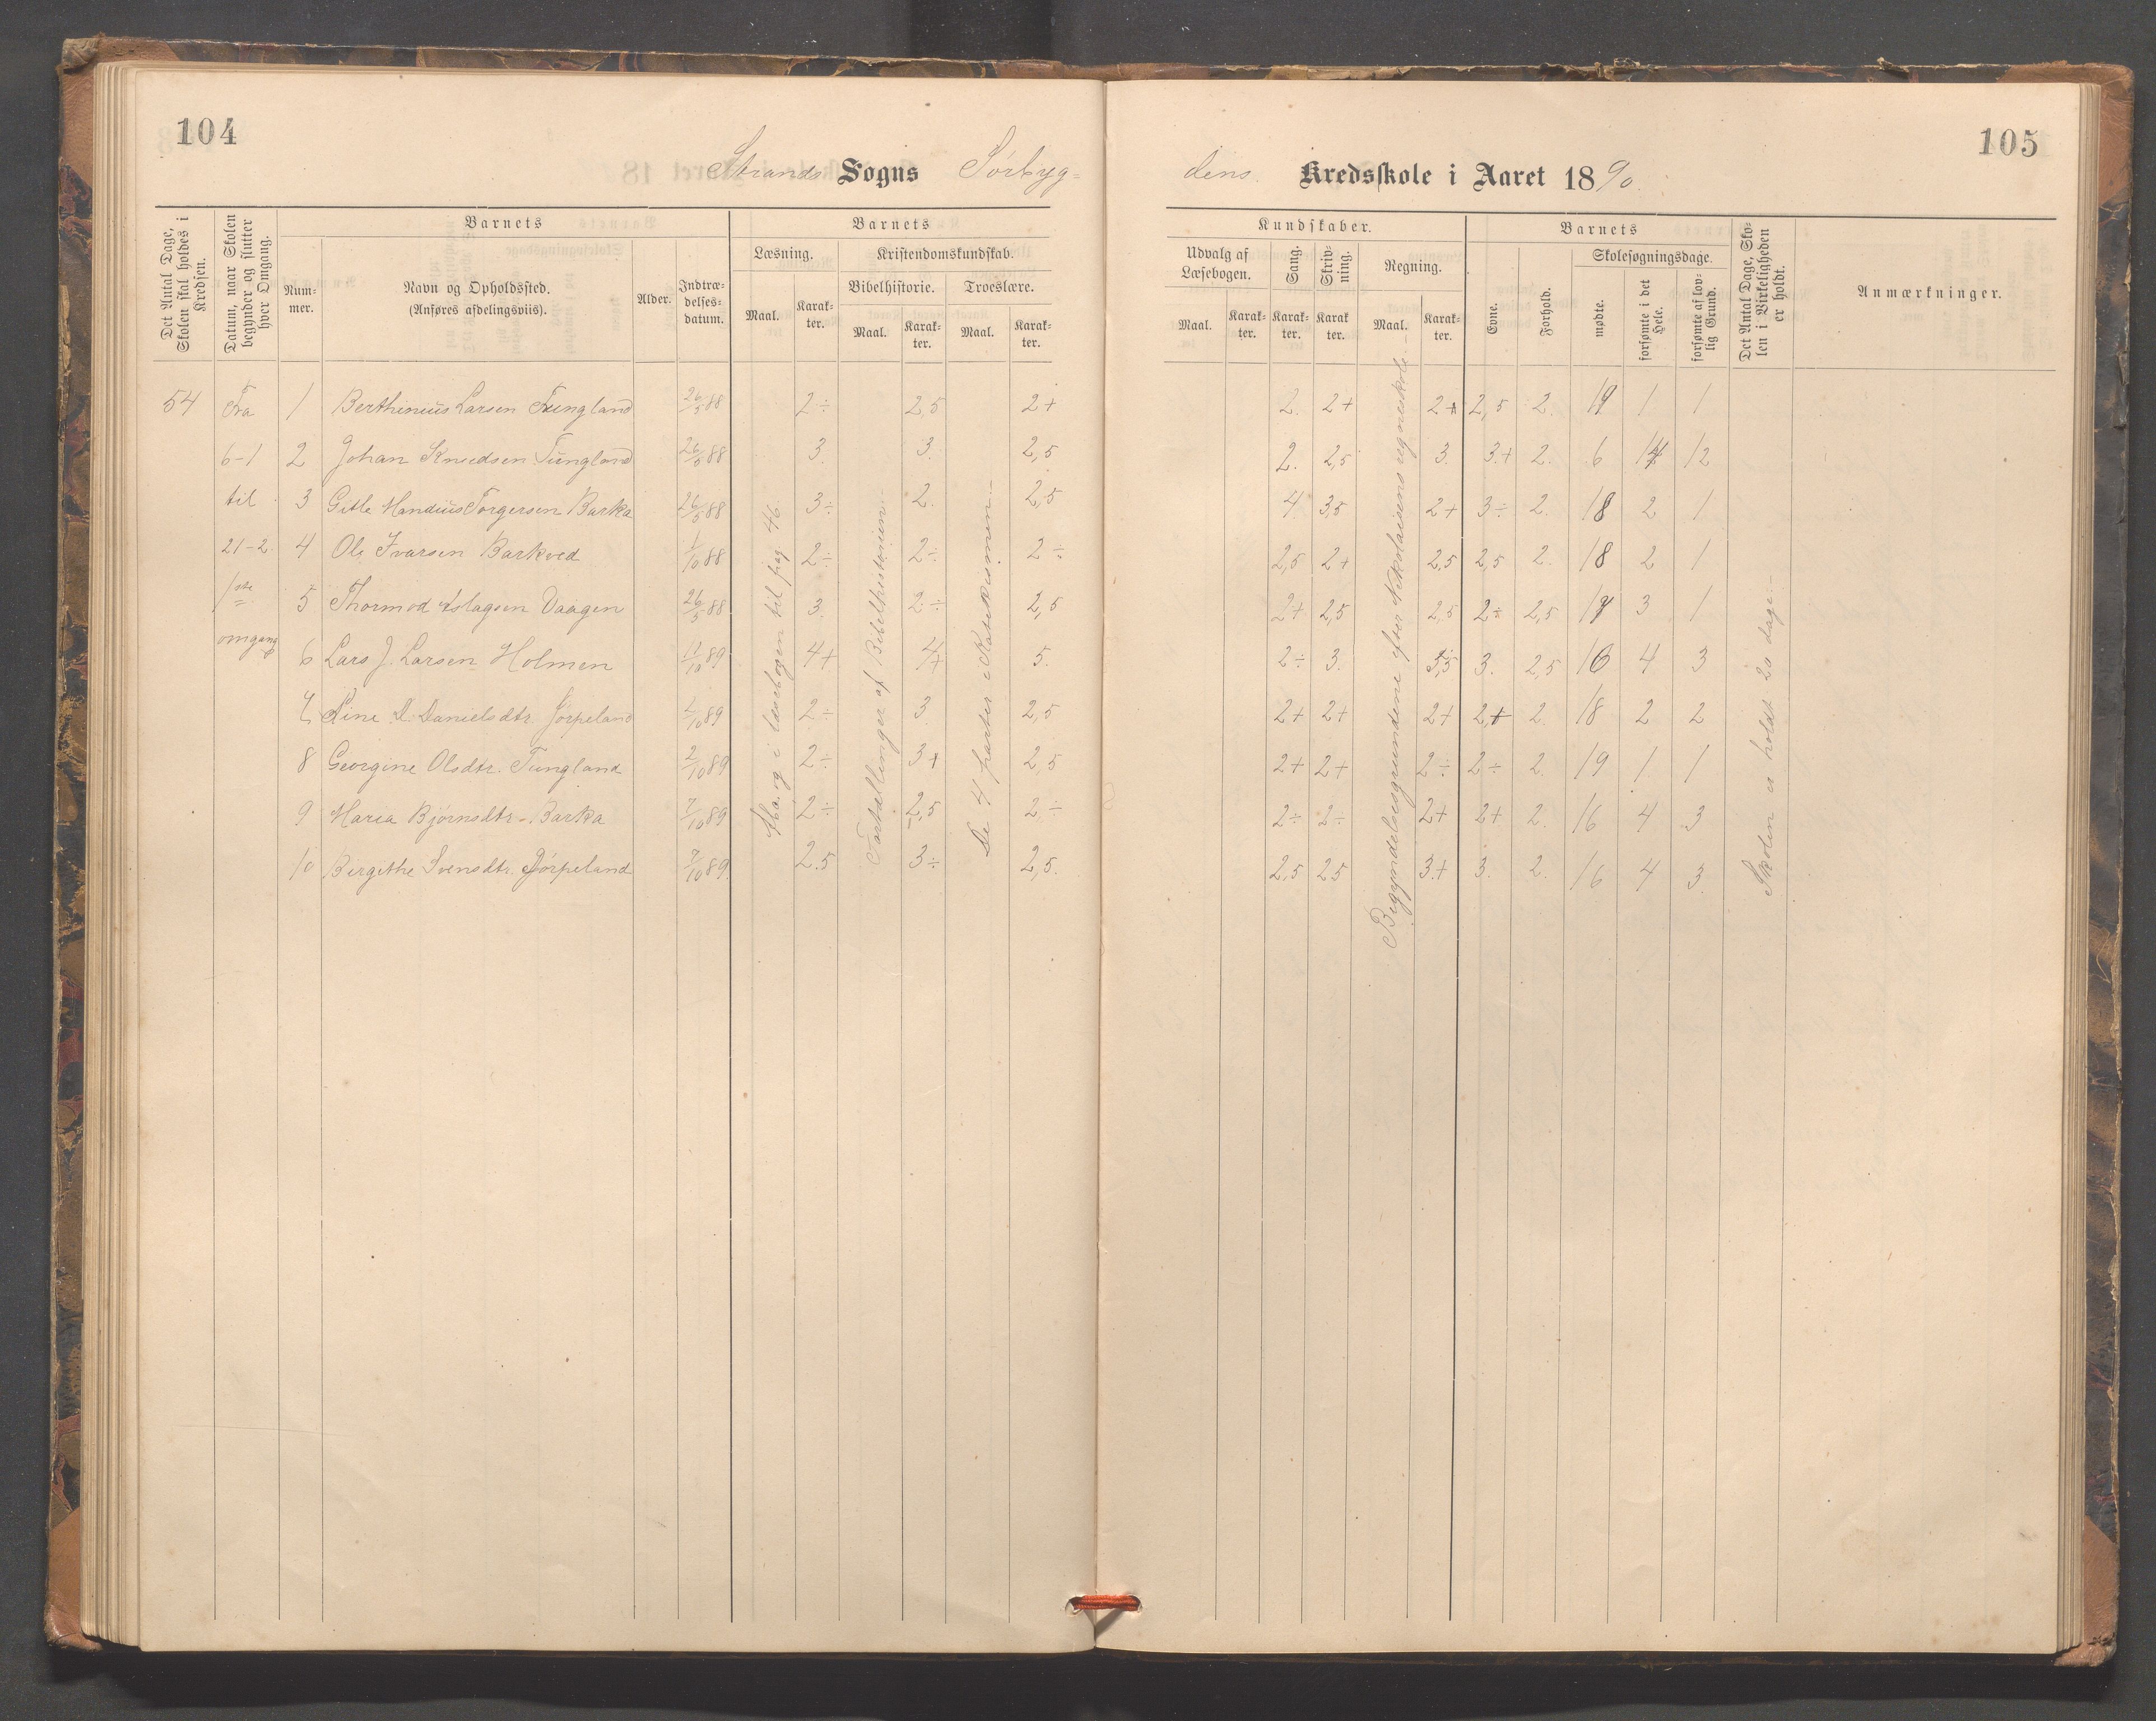 104
Strands Sogns Sørbyg=
Det Antal Dage, Skolen skal holdes i Kredsen.
Datum, naar Skolen begynder og slutter hver Omgang.
Barnets
Num-
mer.
Navn og Opholdssted.
(Anføres afdelingsviis).
Alder.
Indtræ-
delses-
datum.
Barnets
Læsning.
Kristendomskundskab.
Bibelhistorie. Troeslære.
Maal. Karak-
ter.
Maal. Karak-
ter.
Maal. Karak-
ter.
54 Fra 1 Berthinius Larsen Tungland 26/5 88 2÷ 2,5 2+
6-1 2 Johan Knudsen Tungland 26/5 88 3. 3. 2,5
til 3 Gitle Mandius Torgersen Barka 26/5 88 3÷ 2. 2,5
21-2. 4 Ole Ivarsen Barkved 1/10 88 2÷ 2÷ 2÷
1ste 5 Thormod Aslagsen Vaagen 26/5 88 3. 2÷ 2,5
omgang 6 Lars J. Larsen Holmen 11/10 89 4+ 4+ 5.
7 Line D. Danielsdtr Jørpeland 2/10 89 2÷ 3 2,5
8 Georgine Olsdtr. Tungland 2/10 89 2÷ 3+ 2,5
9 Maria Bjørnsdtr. Barka 7/10 89 2÷ 2,5 2,÷
10 Bergithe Svensdtr. Jørpeland 7/10 89. 2.5 3÷ 2,5.
og i læsebogen til pag 46.
Fortællinger af Bibelhistorien.
De 4 parter i Katekismen.
105
dens. Kredsskole i Aaret 1890.
Kundskaber.
Udvalg af
Læsebogen.
Sang.
Skriv-
ning.
Regning.
Maal. Karak-
ter.
Karak-
ter.
Karak
ter.
Maal. Karak-
ter.
Barnets
Evne.
Forhold.
Skolesøgningsdage.
mødte.
forsømte i det Hele.
forsømte af lov-
lig Grund.
Det Antal Dage, Sko-
len i Virkeligheden
er holdt.
Anmærkninger.
2. 2+ 2+ 2,5 2. 19 1 1
2. 2,5 3. 3.+ 2. 6 14 12
4 3,5 2+ 3÷ 2. 18 2 1
2,5 2+ 2,5 2,5 2. 18 2 1
2+ 2,5 2,5 2÷ 2,5 17 3 1
2÷ 3. 3,5 3. 2,5 16 4 3
2+ 2+ 2+ 2,+ 2. 18 2 2
2+ 2+ 2÷ 2÷ 2. 19 1 1
2÷ 2÷ 2+ 2+ 2. 16 4 3
2,5 25 3.+ 3. 2. 16 4 3.
Begyndelsesgrundene efter Nikolaisens regneskole.
Skolen er holdt 20 dage.